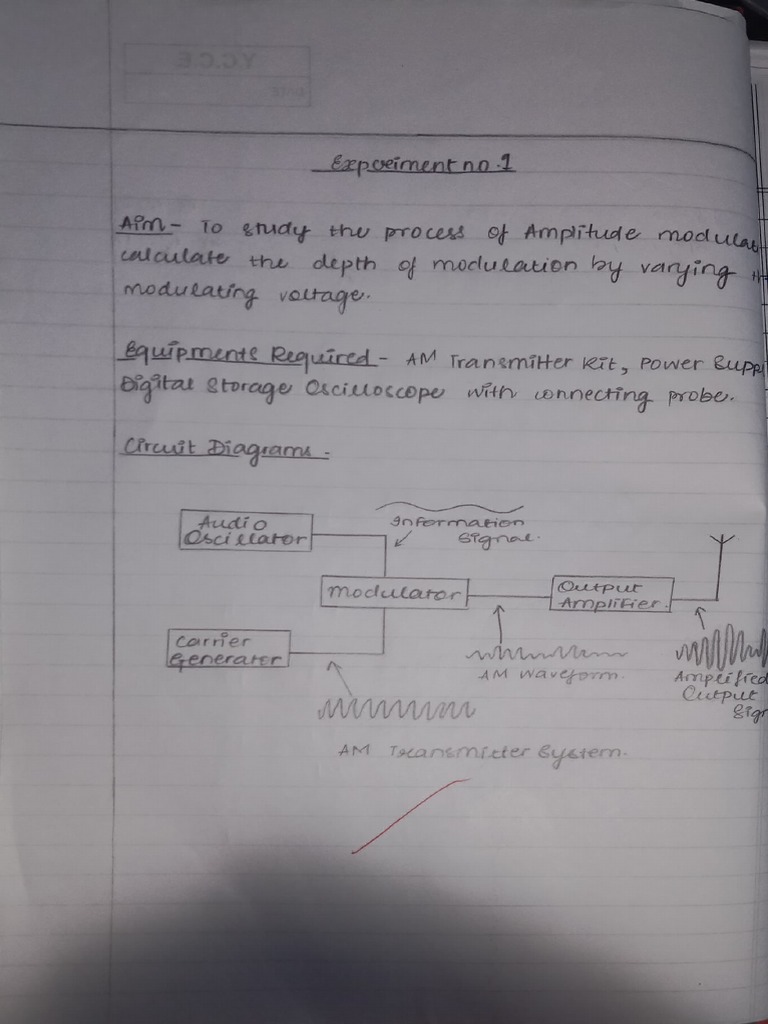 Y.C.C.E
DATE
Expreiment no.1
Aim - To study the process of Amplitude modulat
calculate the depth of modulation by varying th
modulating voltage.
Equipments Required - AM Transmitter Kit, Power Supp
Digital Storage Oscilloscope with connecting probe.
Circuit Diagrams -
Audio
Oscillator
Information
Signal.
Modulator
Output
Amplifier.
Carrier
Generator
AM Waveform.
Amplified
Output
Sign
AM Transmitter System.